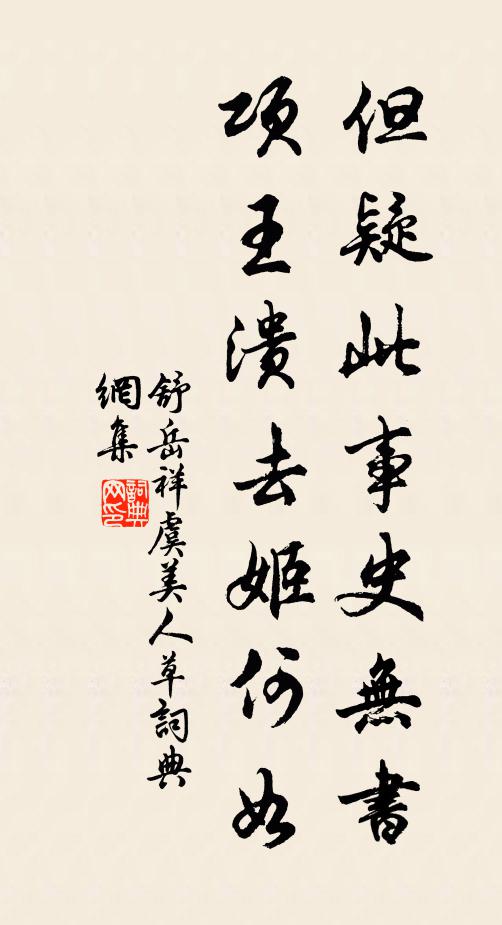 但疑此事史無書
项王溃去姬何如
舒岳祥虞美人草詞典
網集
詞典网印